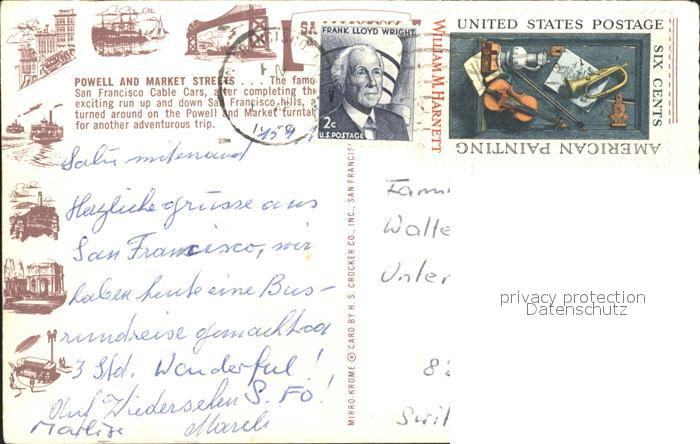 UNITED STATES POSTAGE
SIX CENTS
AMERICAN PAINTING
WILLIAM M. HARNETT
FRANK LLOYD WRIGHT
2c
U.S. POSTAGE
POWELL AND MARKET STREETS . . . . The famo
San Francisco Cable Cars, after completing the
exciting run up and down San Francisco hills, a
turned around on the Powell and Market turntab
for another adventurous trip.
Salü mitenand
Herzliche grüsse aus
San Francisco, wir
haben heute eine Bus-
rundreise gemacht
3 Std. Wonderful!
Auf Wiedersehen S. Fo!
Marlise Marcel
MIRRO-KROME ® CARD BY H. S. CROCKER CO., INC., SAN FRANCISC
Fami
Walle
Unter
Swit
privacy protection
Datenschutz